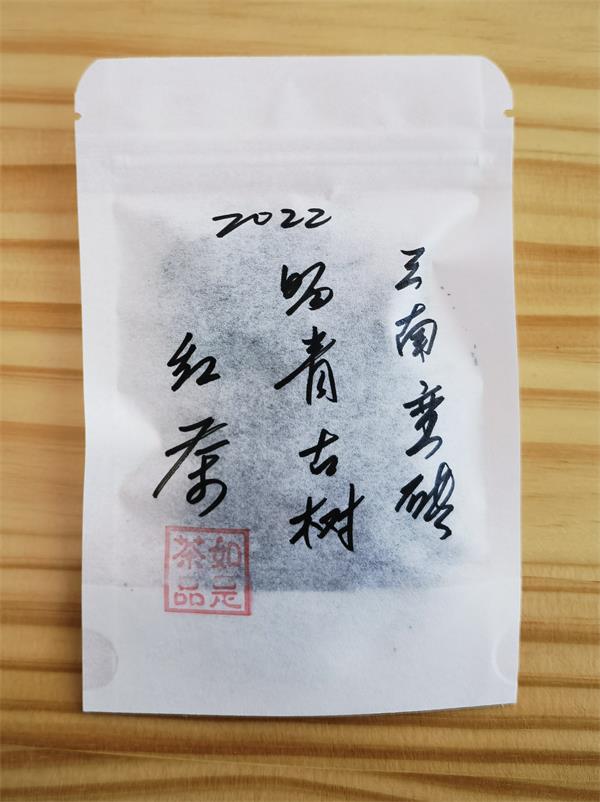 2022
云南蛮砖
晒青古树
红茶
如是
茶品